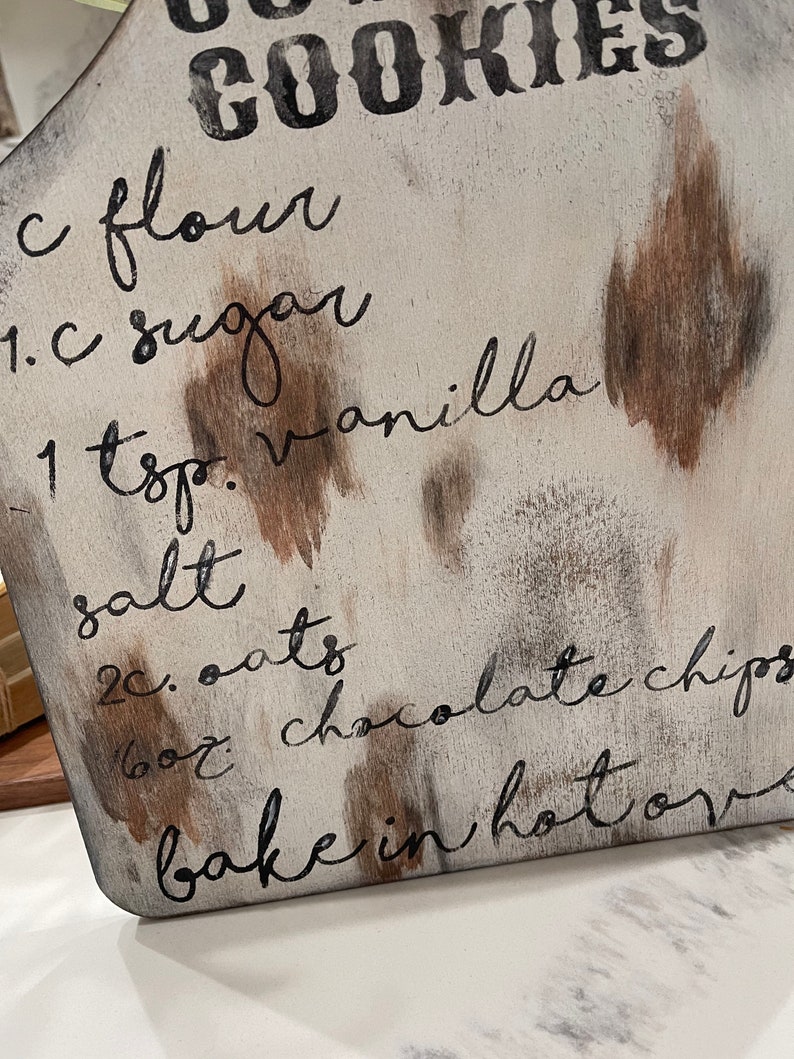 COOKIES
c flour
1.c sugar
1 tsp. vanilla
salt
2c. oats
6oz. chocolate chips
bake in hot ove